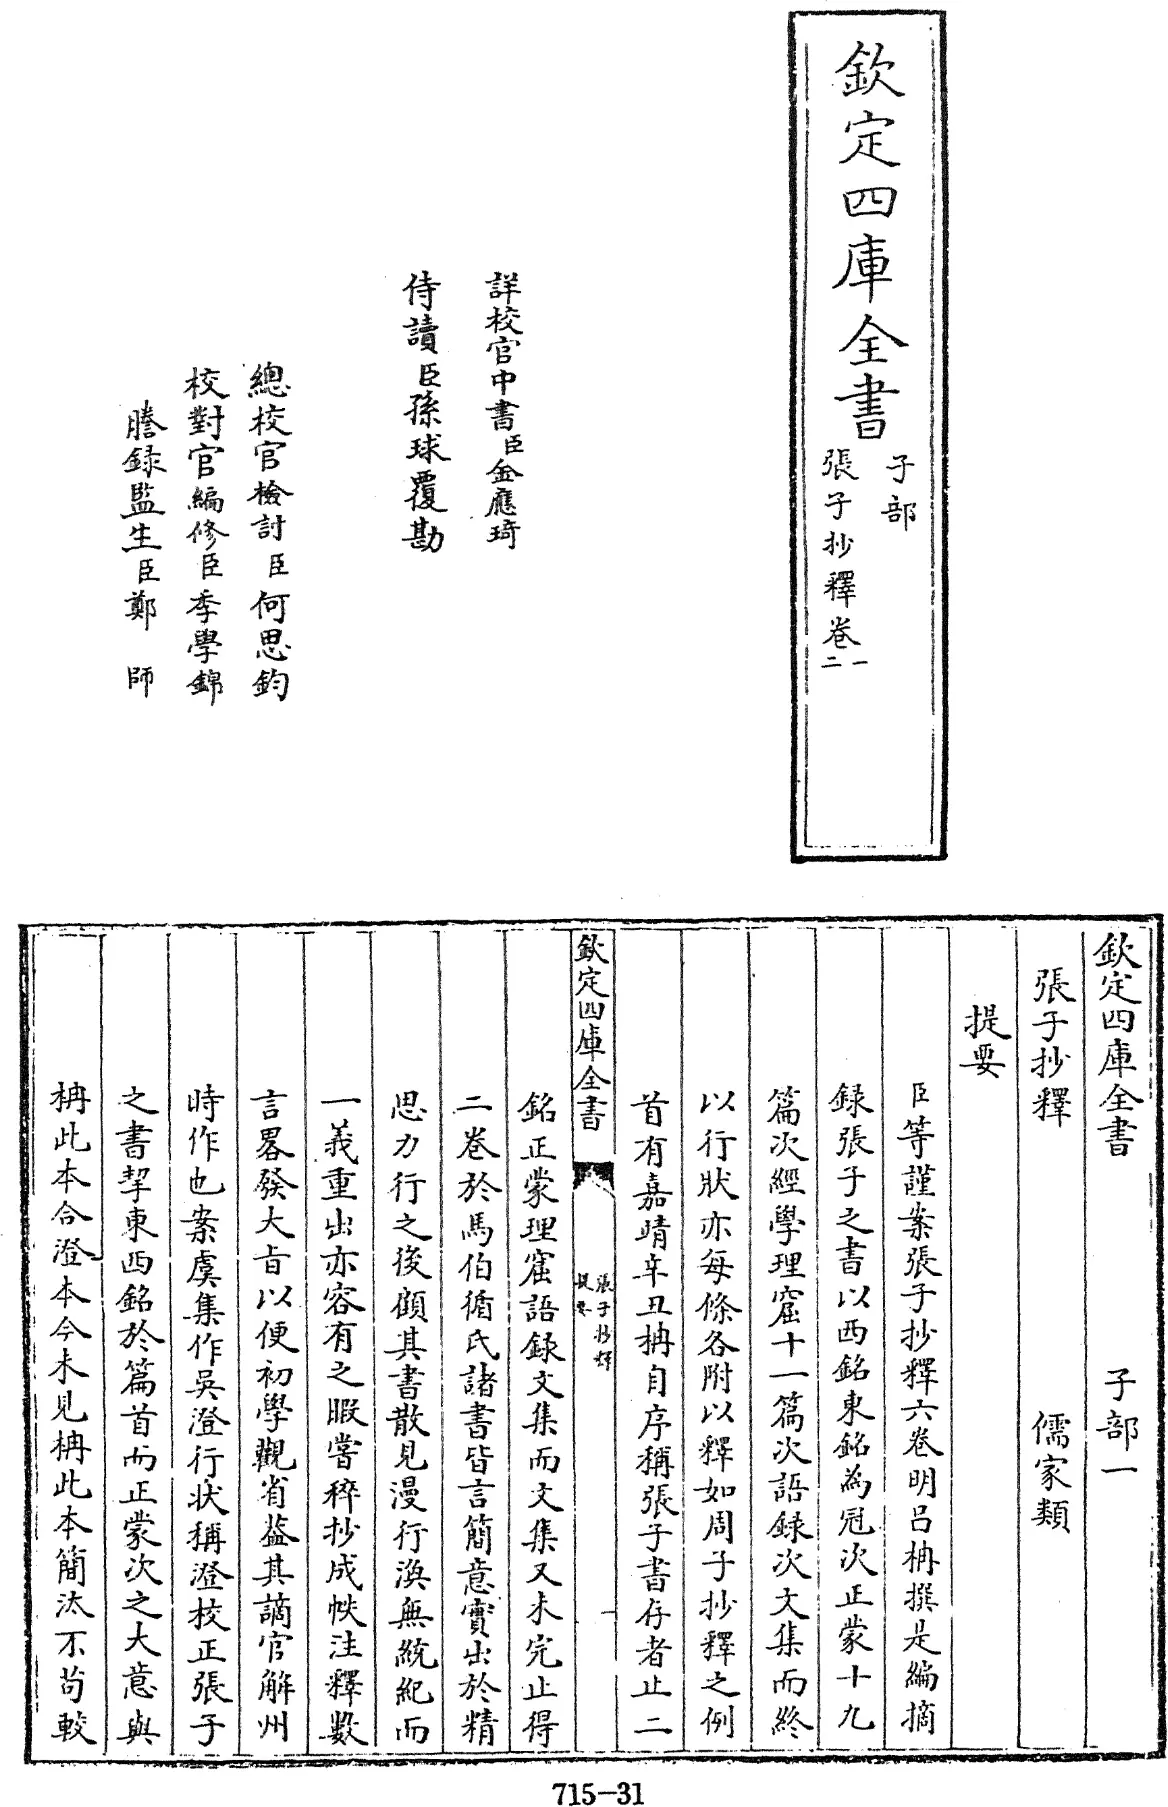 欽定四庫全書
子部
張子抄釋卷一
二
詳校官中書臣金應琦
侍讀臣孫球覆勘
總校官檢討臣何思鈞
校對官編修臣季學錦
謄録監生臣鄭　師
欽定四庫全書　子部一
張子抄釋　儒家類
提要
臣等謹案張子抄釋六卷明吕柟撰是編摘
録張子之書以西銘東銘為冠次正蒙十九
篇次經學理窟十一篇次語録次文集而終
以行狀亦每條各附以釋如周子抄釋之例
首有嘉靖辛丑柟自序稱張子書存者止二
欽定四庫全書
張子抄釋
提要
一
銘正蒙理窟語録文集而文集又未完止得
二卷於馬伯循氏諸書皆言簡意實出於精
思力行之後顧其書散見漫行渙無統紀而
一義重出亦容有之暇嘗稡抄成帙注釋數
言畧發大㫖以便初學觀省葢其謫官解州
時作也案虞集作吳澄行状稱澄校正張子
之書挈東西銘於篇首而正蒙次之大意與
柟此本合澄本今未見柟此本簡汰不苟較
715-31